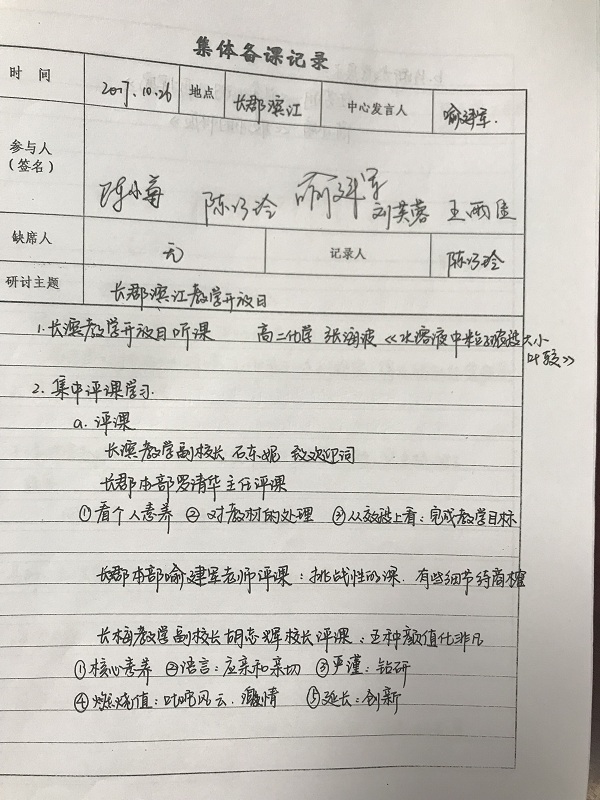 集体备课记录
时 间 2017.10.26 地点 长郡滨江 中心发言人 喻建军.
参与人
(签名) 陈小莓 陈巧玲 喻建军 刘芙蓉 王雨佳
缺席人 无 记录人 陈巧玲
研讨主题 长郡滨江教学开放日
1.长滨教学开放日听课 高二化学 张海波《水溶液中粒子浓度大小
比较》
2. 集中评课学习.
a. 评课
长滨教学副校长 石东妮 致欢迎词
长郡本部罗清华主任评课
①看个人素养 ②对教材的处理 ③从效益上看:完成教学目标
长郡本部喻建军老师评课:挑战性的课.有些细节待商榷
长梅教学副校长胡志辉校长评课:五种颜值化非凡
①核心素养 ②语言:应亲和亲切 ③严谨:钻研
④燃烧值:叱咤风云.激情 ⑤延长:创新